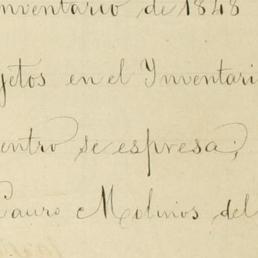 Inventario de 1848
jetos en el Inventari
entro se espresa;
Lauro Molinos del